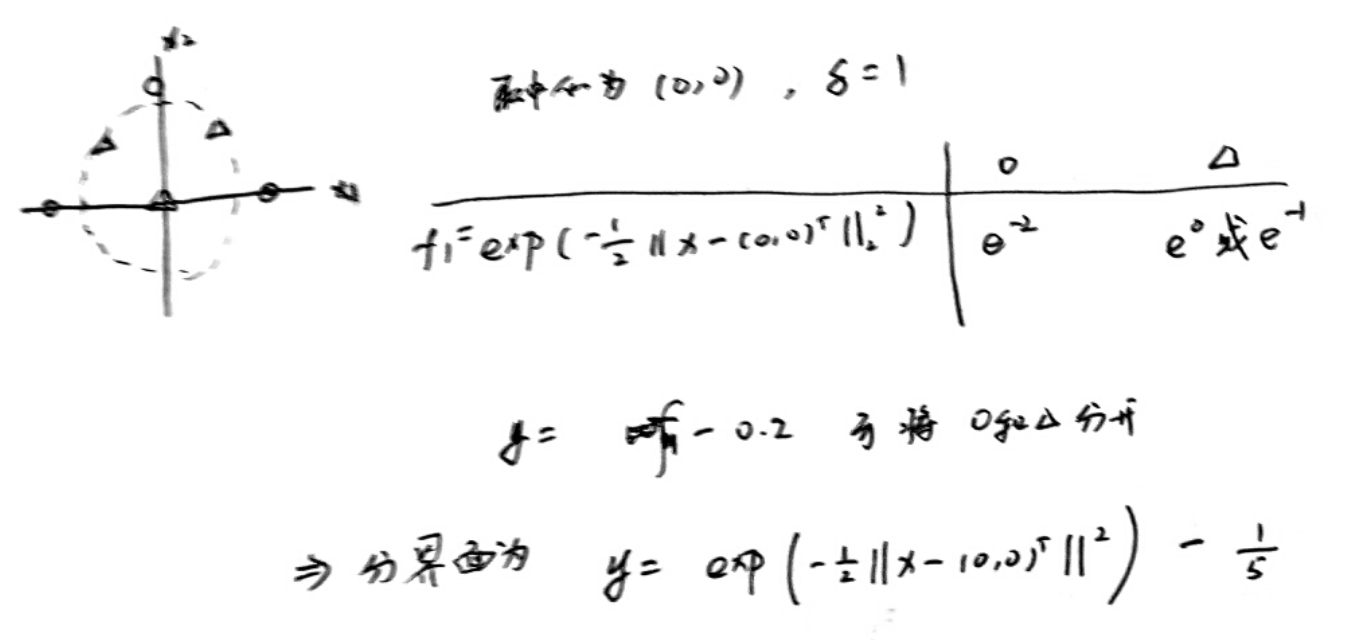 x2
取中心为 (0,0) , δ=1
x1
○ △
f1=exp(-½||x-(0,0)ᵀ||₂²) e⁻² e⁰或e⁻¹
y= f1 - 0.2 可将 ○和△分开
⇒ 分界面为 y= exp(-½||x-(0,0)ᵀ||²) - 1/5